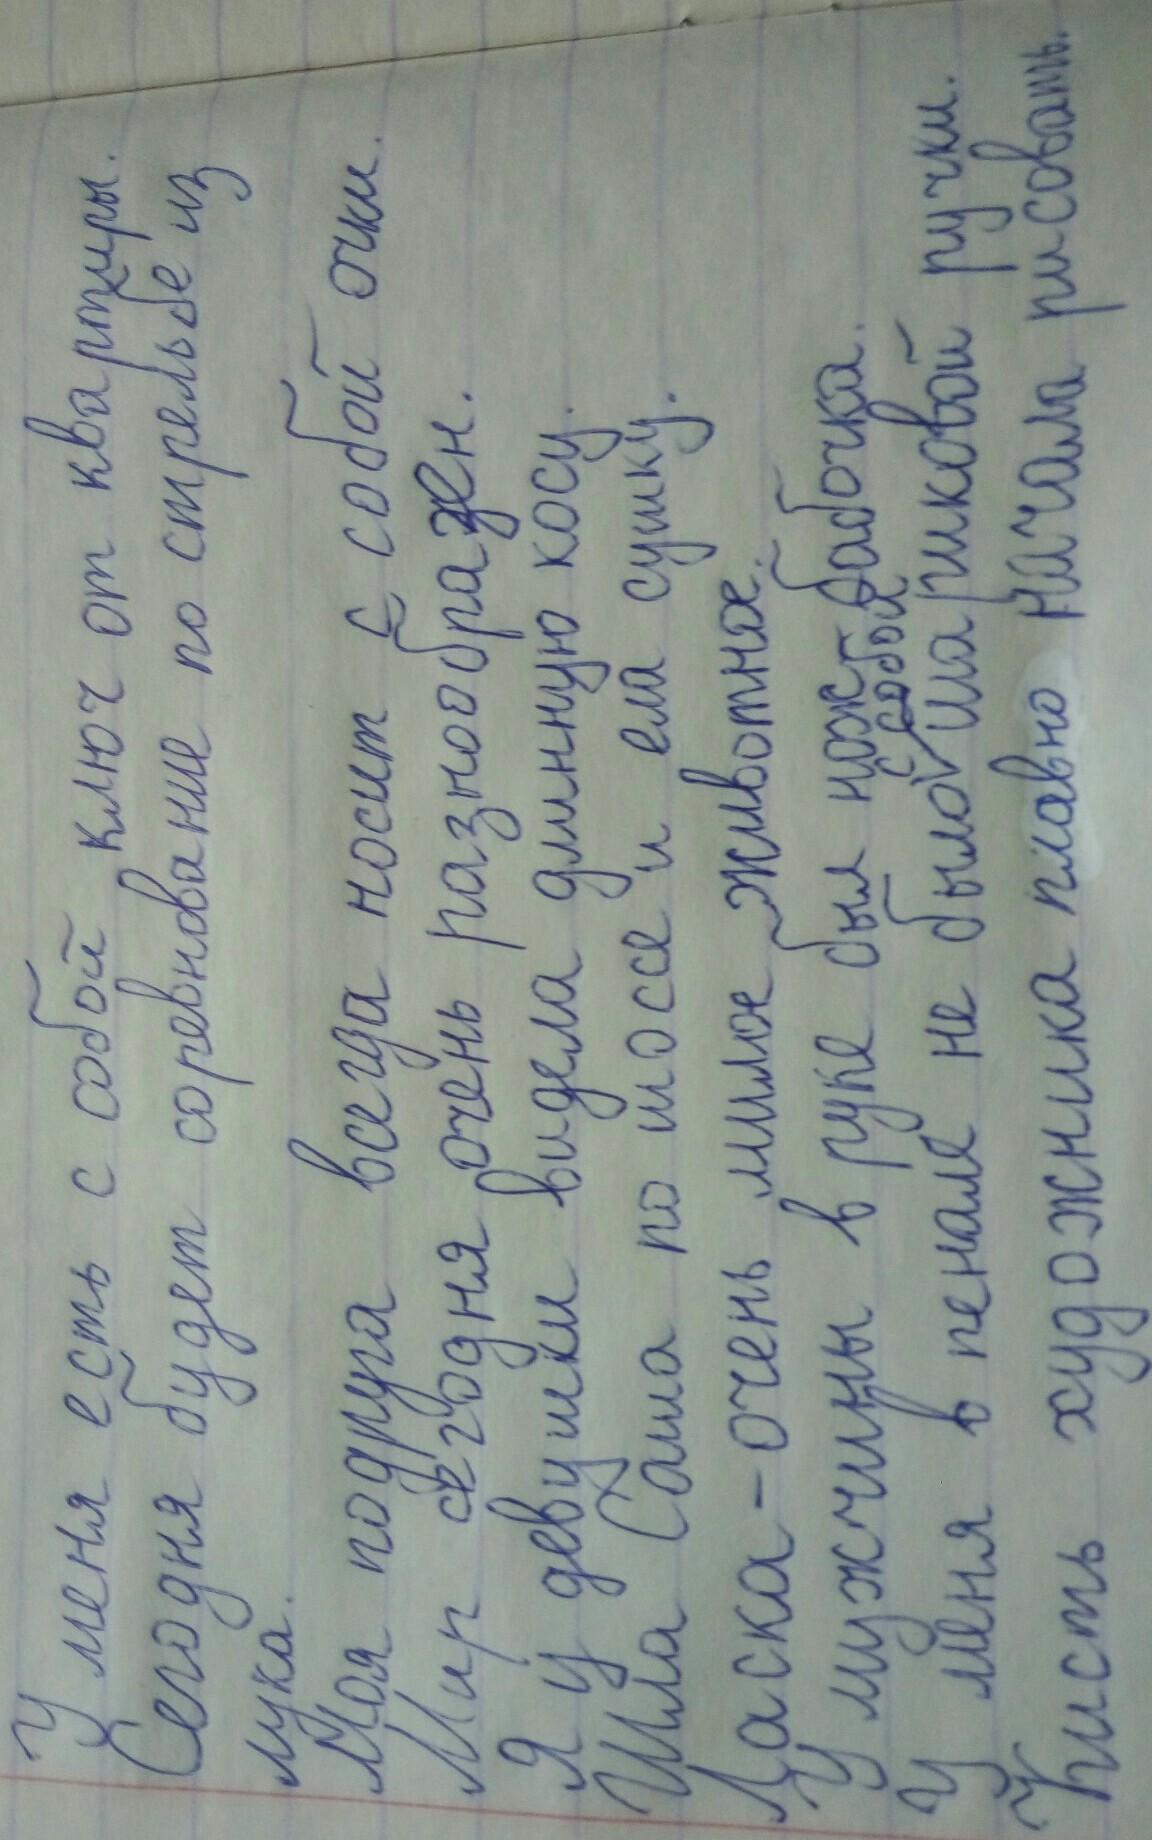 У меня есть с собой ключ от квартиры.
Сегодня будет соревнование по стрельбе из
лука.
Моя подруга всегда носит с собой очки.
Мир сегодня очень разнообразен.
Я у девушки видела длинную косу.
Шла Саша по шоссе и ела сушку.
Ласка - очень милое животное.
У мужчины в руке был нож-бабочка.
с собой
У меня в пенале не было шариковой ручки.
Кисть художника плавно начала рисовать.